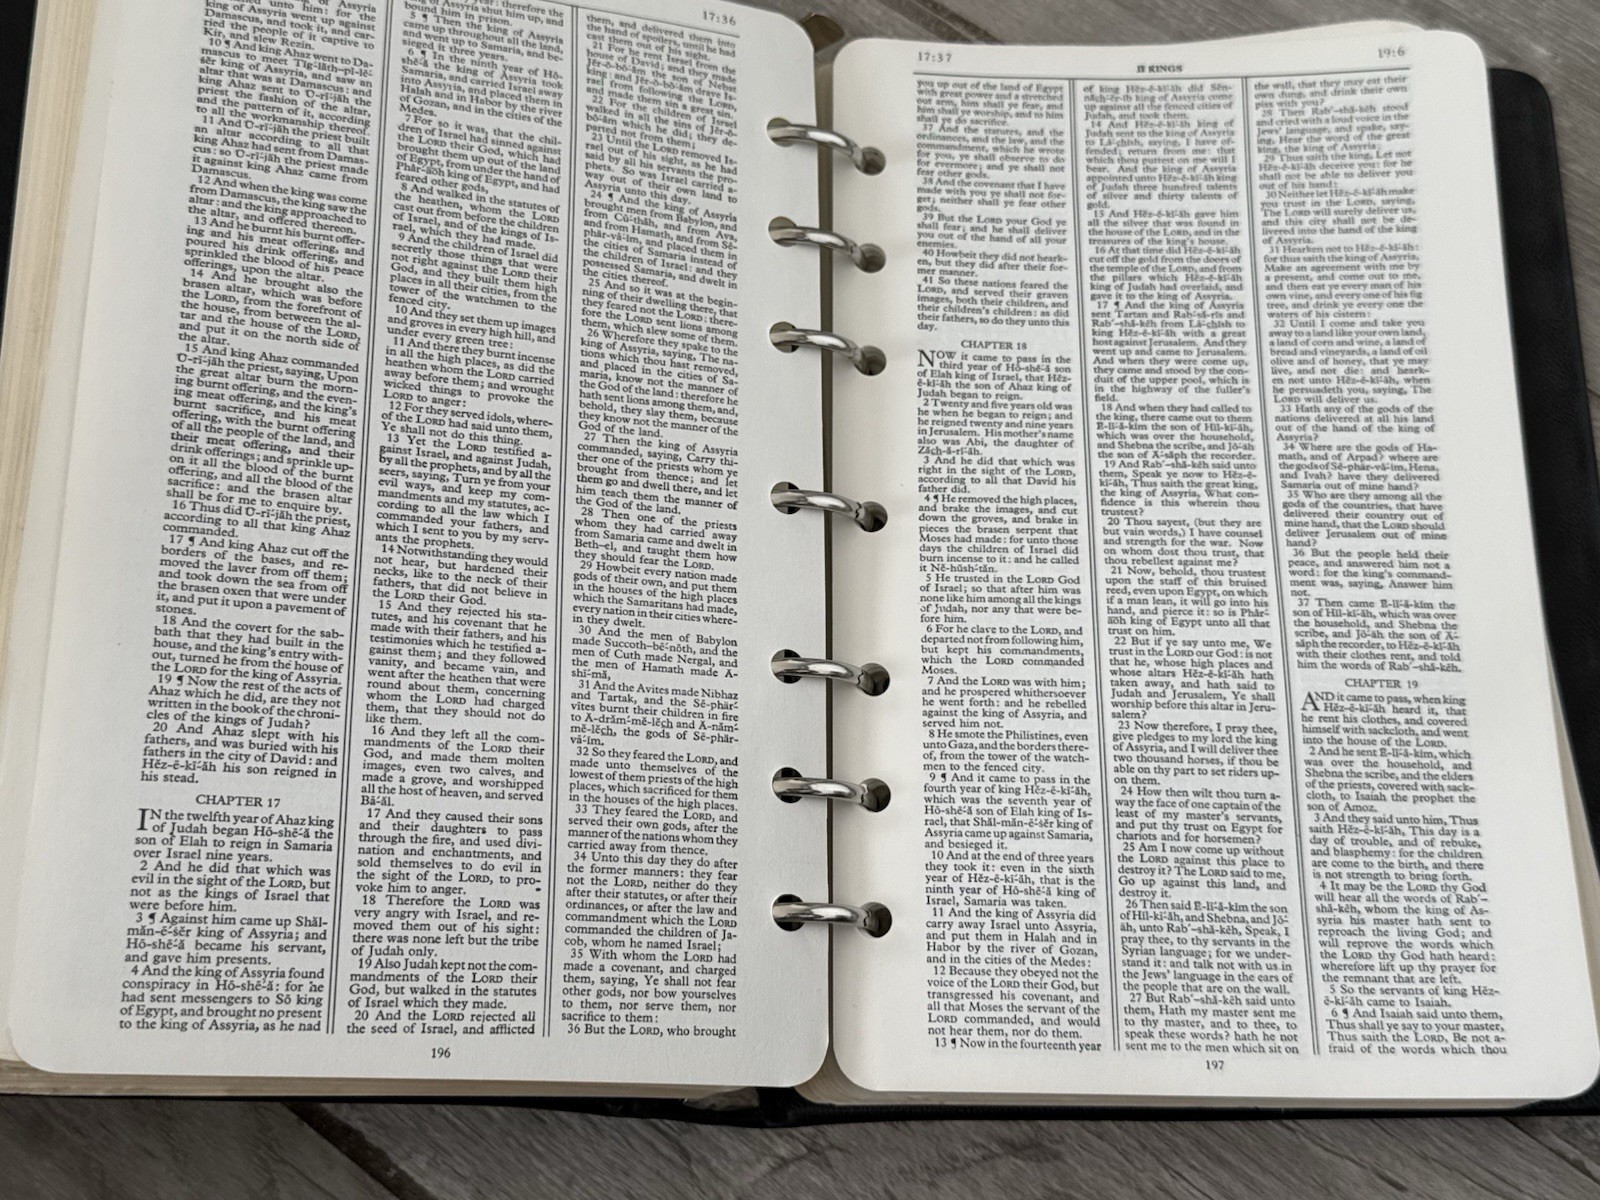 17:36
Assyria
unto him: for the
king of Assyria went up against
Damascus, and took it, and car-
ried the people of it captive to
Kir, and slew Rezin.
10 ¶ And king Ahaz went to Da-
mascus to meet Tĭg´-lăth-pĭ-lē´-
sēr king of Assyria, and saw an
altar that was at Damascus: and
king Ahaz sent to Ū-rī´-jăh the
priest the fashion of the altar,
and the pattern of it, according
to all the workmanship thereof.
11 And Ū-rī´-jăh the priest built
an altar according to all that
king Ahaz had sent from Damas-
cus: so Ū-rī´-jăh the priest made
it against king Ahaz came from
Damascus.
12 And when the king was come
from Damascus, the king saw the
altar: and the king approached to
the altar, and offered thereon.
13 And he burnt his burnt offer-
ing and his meat offering, and
poured his drink offering, and
sprinkled the blood of his peace
offerings, upon the altar.
14 And he brought also the
brasen altar, which was before
the LORD, from the forefront of
the house, from between the al-
tar and the house of the LORD,
and put it on the north side of
the altar.
15 And king Ahaz commanded
Ū-rī´-jăh the priest, saying, Upon
the great altar burn the morn-
ing burnt offering, and the even-
ing meat offering, and the king's
burnt sacrifice, and his meat
offering, with the burnt offering
of all the people of the land, and
their meat offering, and their
drink offerings; and sprinkle up-
on it all the blood of the burnt
offering, and all the blood of the
sacrifice: and the brasen altar
shall be for me to enquire by.
16 Thus did Ū-rī´-jăh the priest,
according to all that king Ahaz
commanded.
17 ¶ And king Ahaz cut off the
borders of the bases, and re-
moved the laver from off them;
and took down the sea from off
the brasen oxen that were under
it, and put it upon a pavement of
stones.
18 And the covert for the sab-
bath that they had built in the
house, and the king's entry with-
out, turned he from the house of
the LORD for the king of Assyria.
19 ¶ Now the rest of the acts of
Ahaz which he did, are they not
written in the book of the chroni-
cles of the kings of Judah?
20 And Ahaz slept with his
fathers, and was buried with his
fathers in the city of David: and
Hĕz-ē-kī´-ăh his son reigned in
his stead.
CHAPTER 17
IN the twelfth year of Ahaz king
of Judah began Hō-shē´-ă the
son of Elah to reign in Samaria
over Israel nine years.
2 And he did that which was
evil in the sight of the LORD, but
not as the kings of Israel that
were before him.
3 ¶ Against him came up Shăl-
măn-ē´-sĕr king of Assyria; and
Hō-shē´-ă became his servant,
and gave him presents.
4 And the king of Assyria found
conspiracy in Hō-shē´-ă: for he
had sent messengers to Sō king
of Egypt, and brought no present
to the king of Assyria, as he had
year: therefore the
king of Assyria shut him up, and
bound him in prison.
5 ¶ Then the king of Assyria
came up throughout all the land,
and went up to Samaria, and be-
sieged it three years.
6 ¶ In the ninth year of Hō-
shē´-ă the king of Assyria took
Samaria, and carried Israel away
into Assyria, and placed them in
Halah and in Habor by the river
of Gozan, and in the cities of the
Medes.
7 For so it was, that the chil-
dren of Israel had sinned against
the LORD their God, which had
brought them up out of the land
of Egypt, from under the hand of
Phār´-āōh king of Egypt, and had
feared other gods,
8 And walked in the statutes of
the heathen, whom the LORD
cast out from before the children
of Israel, and of the kings of Is-
rael, which they had made.
9 And the children of Israel did
secretly those things that were
not right against the LORD their
God, and they built them high
places in all their cities, from the
tower of the watchmen to the
fenced city.
10 And they set them up images
and groves in every high hill, and
under every green tree:
11 And there they burnt incense
in all the high places, as did the
heathen whom the LORD carried
away before them; and wrought
wicked things to provoke the
LORD to anger:
12 For they served idols, where-
of the LORD had said unto them,
Ye shall not do this thing.
13 Yet the LORD testified a-
gainst Israel, and against Judah,
by all the prophets, and by all the
seers, saying, Turn ye from your
evil ways, and keep my com-
mandments and my statutes, ac-
cording to all the law which I
commanded your fathers, and
which I sent to you by my serv-
ants the prophets.
14 Notwithstanding they would
not hear, but hardened their
necks, like to the neck of their
fathers, that did not believe in
the LORD their God.
15 And they rejected his sta-
tutes, and his covenant that he
made with their fathers, and his
testimonies which he testified a-
gainst them; and they followed
vanity, and became vain, and
went after the heathen that were
round about them, concerning
whom the LORD had charged
them, that they should not do
like them.
16 And they left all the com-
mandments of the LORD their
God, and made them molten
images, even two calves, and
made a grove, and worshipped
all the host of heaven, and served
Bā´-ăl.
17 And they caused their sons
and their daughters to pass
through the fire, and used divi-
nation and enchantments, and
sold themselves to do evil in
the sight of the LORD, to pro-
voke him to anger.
18 Therefore the LORD was
very angry with Israel, and re-
moved them out of his sight:
there was none left but the tribe
of Judah only.
19 Also Judah kept not the com-
mandments of the LORD their
God, but walked in the statutes
of Israel which they made.
20 And the LORD rejected all
the seed of Israel, and afflicted
them, and delivered them into
the hand of spoilers, until he had
cast them out of his sight.
21 For he rent Israel from the
house of David; and they made
Jĕr-ō-bō´-ăm the son of Nebat
king: and Jĕr-ō-bō´-ăm drave Is-
rael from following the LORD,
and made them sin a great sin.
22 For the children of Israel
walked in all the sins of Jĕr-ō-
bō´-ăm which he did; they de-
parted not from them;
23 Until the LORD removed Is-
rael out of his sight, as he had
said by all his servants the pro-
phets. So was Israel carried a-
way out of their own land to
Assyria unto this day.
24 ¶ And the king of Assyria
brought men from Babylon, and
from Cū´-thăh, and from Ava,
and from Hamath, and from Sĕ-
phär-vā´-im, and placed them in
the cities of Samaria instead of
the children of Israel: and they
possessed Samaria, and dwelt in
the cities thereof.
25 And so it was at the begin-
ning of their dwelling there, that
they feared not the LORD: there-
fore the LORD sent lions among
them, which slew some of them.
26 Wherefore they spake to the
king of Assyria, saying, The na-
tions which thou hast removed,
and placed in the cities of Sa-
maria, know not the manner of
the God of the land: therefore he
hath sent lions among them, and,
behold, they slay them, because
they know not the manner of the
God of the land.
27 Then the king of Assyria
commanded, saying, Carry thi-
ther one of the priests whom ye
brought from thence; and let
them go and dwell there, and let
him teach them the manner of
the God of the land.
28 Then one of the priests
whom they had carried away
from Samaria came and dwelt in
Beth–el, and taught them how
they should fear the LORD.
29 Howbeit every nation made
gods of their own, and put them
in the houses of the high places
which the Samaritans had made,
every nation in their cities where-
in they dwelt.
30 And the men of Babylon
made Succoth–bē´-nōth, and the
men of Cuth made Nergal, and
the men of Hamath made Ă-
shī´-mă,
31 And the Avites made Nibhaz
and Tartak, and the Sē-phär-
vites burnt their children in fire
to Ă-drăm´-mĕ-lĕch and Ă-năm´-
mĕ-lĕch, the gods of Sē-phär-
vā´-im.
32 So they feared the LORD, and
made unto themselves of the
lowest of them priests of the high
places, which sacrificed for them
in the houses of the high places.
33 They feared the LORD, and
served their own gods, after the
manner of the nations whom they
carried away from thence.
34 Unto this day they do after
the former manners: they fear
not the LORD, neither do they
after their statutes, or after their
ordinances, or after the law and
commandment which the LORD
commanded the children of Ja-
cob, whom he named Israel;
35 With whom the LORD had
made a covenant, and charged
them, saying, Ye shall not fear
other gods, nor bow yourselves
to them, nor serve them, nor
sacrifice to them:
36 But the LORD, who brought
196
17:37
II KINGS
19:6
you up out of the land of Egypt
with great power and a stretched
out arm, him shall ye fear, and
him shall ye worship, and to him
shall ye do sacrifice.
37 And the statutes, and the
ordinances, and the law, and the
commandment, which he wrote
for you, ye shall observe to do
for evermore; and ye shall not
fear other gods.
38 And the covenant that I have
made with you ye shall not for-
get; neither shall ye fear other
gods.
39 But the LORD your God ye
shall fear; and he shall deliver
you out of the hand of all your
enemies.
40 Howbeit they did not heark-
en, but they did after their for-
mer manner.
41 So these nations feared the
LORD, and served their graven
images, both their children, and
their children's children: as did
their fathers, so do they unto this
day.
CHAPTER 18
NOW it came to pass in the
third year of Hō-shē´-ă son
of Elah king of Israel, that Hĕz-
ē-kī´-ăh the son of Ahaz king of
Judah began to reign.
2 Twenty and five years old was
he when he began to reign; and
he reigned twenty and nine years
in Jerusalem. His mother's name
also was Abi, the daughter of
Zăch-ă-rī´-ăh.
3 And he did that which was
right in the sight of the LORD,
according to all that David his
father did.
4 ¶ He removed the high places,
and brake the images, and cut
down the groves, and brake in
pieces the brasen serpent that
Moses had made: for unto those
days the children of Israel did
burn incense to it: and he called
it Nĕ-hŭsh´-tăn.
5 He trusted in the LORD God
of Israel; so that after him was
none like him among all the kings
of Judah, nor any that were be-
fore him.
6 For he clave to the LORD, and
departed not from following him,
but kept his commandments,
which the LORD commanded
Moses.
7 And the LORD was with him;
and he prospered whithersoever
he went forth: and he rebelled
against the king of Assyria, and
served him not.
8 He smote the Philistines, even
unto Gaza, and the borders there-
of, from the tower of the watch-
men to the fenced city.
9 ¶ And it came to pass in the
fourth year of king Hĕz-ē-kī´-ăh,
which was the seventh year of
Hō-shē´-ă son of Elah king of Is-
rael, that Shăl-măn-ē´-sĕr king of
Assyria came up against Samaria,
and besieged it.
10 And at the end of three years
they took it: even in the sixth
year of Hĕz-ē-kī´-ăh, that is the
ninth year of Hō-shē´-ă king of
Israel, Samaria was taken.
11 And the king of Assyria did
carry away Israel unto Assyria,
and put them in Halah and in
Habor by the river of Gozan,
and in the cities of the Medes:
12 Because they obeyed not the
voice of the LORD their God, but
transgressed his covenant, and
all that Moses the servant of the
LORD commanded, and would
not hear them, nor do them.
13 ¶ Now in the fourteenth year
of king Hĕz-ē-kī´-ăh did Sĕn-
năch´-ĕr-ib king of Assyria come
up against all the fenced cities of
Judah, and took them.
14 And Hĕz-ē-kī´-ăh king of
Judah sent to the king of Assyria
to Lā´-chish, saying, I have of-
fended; return from me: that
which thou puttest on me will I
bear. And the king of Assyria
appointed unto Hĕz-ē-kī´-ăh king
of Judah three hundred talents
of silver and thirty talents of
gold.
15 And Hĕz-ē-kī´-ăh gave him
all the silver that was found in
the house of the LORD, and in the
treasures of the king's house.
16 At that time did Hĕz-ē-kī´-ăh
cut off the gold from the doors of
the temple of the LORD, and from
the pillars which Hĕz-ē-kī´-ăh
king of Judah had overlaid, and
gave it to the king of Assyria.
17 ¶ And the king of Assyria
sent Tartan and Rab´-să-rĭs and
Rab´–shă-kĕh from Lā´-chish to
king Hĕz-ē-kī´-ăh with a great
host against Jerusalem. And they
went up and came to Jerusalem.
And when they were come up,
they came and stood by the con-
duit of the upper pool, which is
in the highway of the fuller's
field.
18 And when they had called to
the king, there came out to them
Ē-lī´-ă-kim the son of Hil-kī´-ăh,
which was over the household,
and Shebna the scribe, and Jō´-ăh
the son of Ā´-săph the recorder.
19 And Rab´–shă-kĕh said unto
them, Speak ye now to Hĕz-ē-
kī´-ăh, Thus saith the great king,
the king of Assyria, What con-
fidence is this wherein thou
trustest?
20 Thou sayest, (but they are
but vain words,) I have counsel
and strength for the war. Now
on whom dost thou trust, that
thou rebellest against me?
21 Now, behold, thou trustest
upon the staff of this bruised
reed, even upon Egypt, on which
if a man lean, it will go into his
hand, and pierce it: so is Phār´-
āōh king of Egypt unto all that
trust on him.
22 But if ye say unto me, We
trust in the LORD our God: is not
that he, whose high places and
whose altars Hĕz-ē-kī´-ăh hath
taken away, and hath said to
Judah and Jerusalem, Ye shall
worship before this altar in Jeru-
salem?
23 Now therefore, I pray thee,
give pledges to my lord the king
of Assyria, and I will deliver thee
two thousand horses, if thou be
able on thy part to set riders up-
on them.
24 How then wilt thou turn a-
way the face of one captain of the
least of my master's servants,
and put thy trust on Egypt for
chariots and for horsemen?
25 Am I now come up without
the LORD against this place to
destroy it? The LORD said to me,
Go up against this land, and
destroy it.
26 Then said Ē-lī´-ă-kim the son
of Hil-kī´-ăh, and Shebna, and Jō´-
ăh, unto Rab´–shă-kĕh, Speak, I
pray thee, to thy servants in the
Syrian language; for we under-
stand it: and talk not with us in
the Jews' language in the ears of
the people that are on the wall.
27 But Rab´–shă-kĕh said unto
them, Hath my master sent me
to thy master, and to thee, to
speak these words? hath he not
sent me to the men which sit on
the wall, that they may eat their
own dung, and drink their own
piss with you?
28 Then Rab´–shă-kĕh stood
and cried with a loud voice in the
Jews' language, and spake, say-
ing, Hear the word of the great
king, the king of Assyria:
29 Thus saith the king, Let not
Hĕz-ē-kī´-ăh deceive you: for he
shall not be able to deliver you
out of his hand:
30 Neither let Hĕz-ē-kī´-ăh make
you trust in the LORD, saying,
The LORD will surely deliver us,
and this city shall not be de-
livered into the hand of the king
of Assyria.
31 Hearken not to Hĕz-ē-kī´-ăh:
for thus saith the king of Assyria,
Make an agreement with me by
a present, and come out to me,
and then eat ye every man of his
own vine, and every one of his fig
tree, and drink ye every one the
waters of his cistern:
32 Until I come and take you
away to a land like your own land,
a land of corn and wine, a land of
bread and vineyards, a land of oil
olive and of honey, that ye may
live, and not die: and heark-
en not unto Hĕz-ē-kī´-ăh, when
he persuadeth you, saying, The
LORD will deliver us.
33 Hath any of the gods of the
nations delivered at all his land
out of the hand of the king of
Assyria?
34 Where are the gods of Ha-
math, and of Arpad? where are
the gods of Sē-phär-vā´-im, Hena,
and Ivah? have they delivered
Samaria out of mine hand?
35 Who are they among all the
gods of the countries, that have
delivered their country out of
mine hand, that the LORD should
deliver Jerusalem out of mine
hand?
36 But the people held their
peace, and answered him not a
word: for the king's command-
ment was, saying, Answer him
not.
37 Then came Ē-lī´-ă-kim the
son of Hil-kī´-ăh, which was over
the household, and Shebna the
scribe, and Jō´-ăh the son of Ā´-
săph the recorder, to Hĕz-ē-kī´-ăh
with their clothes rent, and told
him the words of Rab´–shă-kĕh.
CHAPTER 19
AND it came to pass, when king
Hĕz-ē-kī´-ăh heard it, that
he rent his clothes, and covered
himself with sackcloth, and went
into the house of the LORD.
2 And he sent Ē-lī´-ă-kim, which
was over the household, and
Shebna the scribe, and the elders
of the priests, covered with sack-
cloth, to Isaiah the prophet the
son of Amoz.
3 And they said unto him, Thus
saith Hĕz-ē-kī´-ăh, This day is a
day of trouble, and of rebuke,
and blasphemy: for the children
are come to the birth, and there
is not strength to bring forth.
4 It may be the LORD thy God
will hear all the words of Rab´–
shă-kĕh, whom the king of As-
syria his master hath sent to
reproach the living God; and
will reprove the words which
the LORD thy God hath heard:
wherefore lift up thy prayer for
the remnant that are left.
5 So the servants of king Hĕz-
ē-kī´-ăh came to Isaiah.
6 ¶ And Isaiah said unto them,
Thus shall ye say to your master,
Thus saith the LORD, Be not a-
fraid of the words which thou
197